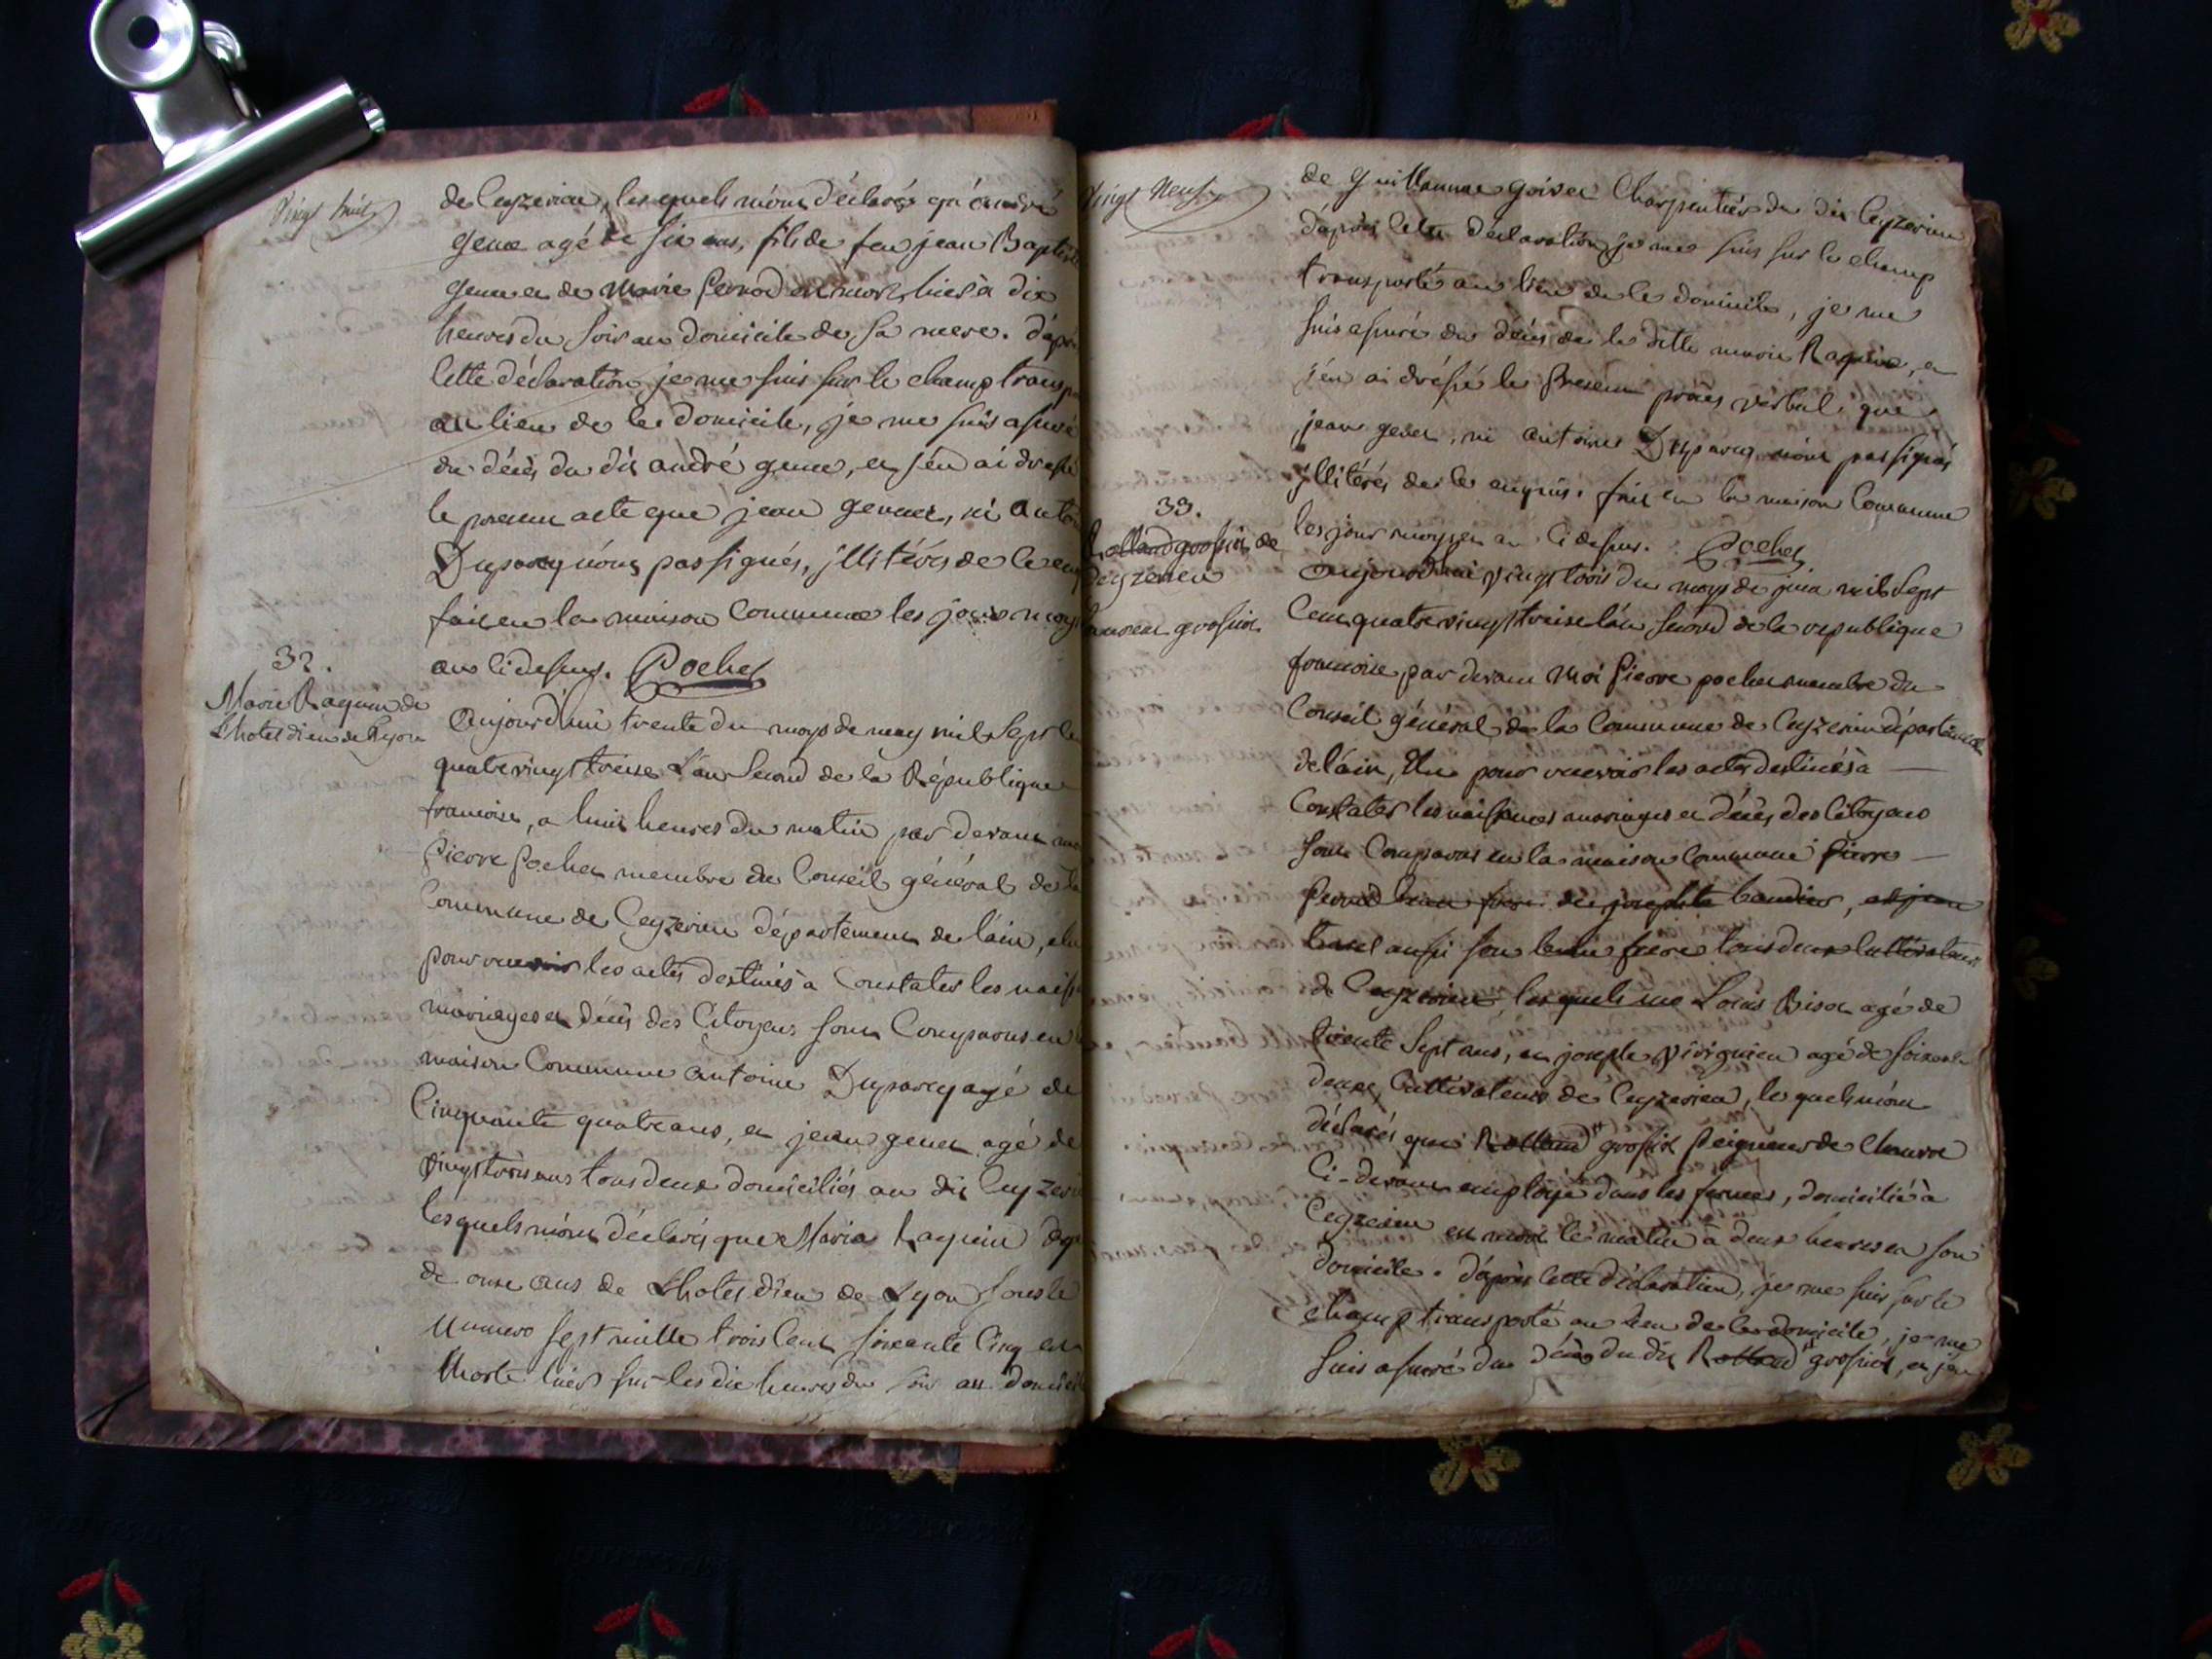 Vingt huit
de Ceyzerieu, les quels m'ont déclaré qu'andré
gene agé de six ans, fils de feu jean Baptiste
gene et de Marie Pernod est mort hier à dix
heures du soir au domicile de sa mere. d'après
cette déclaration je me suis sur le champ transp
au lieu de ce domicile, je me suis assuré
du décès du dit andré gene, et j'en ai dressé
le present acte que jean genet, ni Anto
Duparcy n'ont pas signés, illitérés de ce enq
fait en la maison Commune les jour moys
an Cidessus. Pochet
32.
Marie Raquin de
L'hotel dieu de Lyon
Aujourd'hui trente du moys de may mil sept ce
quatrevingt treise L'an second de la République
francoise, a huit heures du matin par devant moi
Pierre Pochet membre du Conseil général de la
Commune de Ceyzerieu département de l'ain, elu
pour recevoir les actes destinés à Constater les naiss
mariages et décès des Citoyens sont Comparus en la
maison Commune antoine Duparcy agé de
Cinquante quatre ans, et jean genet agé de
vingt trois ans tous deux domiciliés au dit Ceyzeri
lesquels m'ont déclarés que Maria Raquin agé
de onse ans de L'hotel dieu de Lyon sous le
Numero sept mille trois cent soixante cinq est
Morte hier sur les dix heures du soir au domicile
Vingt Neuf
de Guillaume goiset Charpentier du dit Ceyzerieu
d'après cette déclaration, je me suis sur le champ
transporté au lieu de ce domicile, je me
suis assuré du décès de la ditte marie Raquin, et
j'en ai dréssé le present procès verbal, que
jean genet, ni antoine Duparcy n'ont pas signés
illitérés de ce enquis. fait en la maison Commune
les jour moys et an Cidessus. Pochet
33.
Rolland grossin de
Ceyzerieu
grossin
Aujourd'hui vingt trois du moys de juin mil sept
Cent quatrevingt treise l'an second de la republique
francoise par devant Moi Pierre pochet membre du
Conseil général de la Commune de Ceyzerieu département
de l'ain, Elu pour recevoir les actes destinés à
Constater les naissances mariages et décès des Citoyens
sont Comparus en la maison Commune Pierre
Pernod beau frere de josephte baudin, et jean
aussi son beau frere tous deux Cultivateurs
de Ceyzerieu, lesquels me Louis Bisot agé de
trente sept ans, et joseph agé de soixante
deux, Cultivateurs de Ceyzerieu, les quels m'ont
déclarés que Rolland grossin Peigneur de Chanvre
Ci-devant employé dans les fermes, domicilié à
Ceyzerieu est mort ce matin à deux heures en son
domicile. d'après cette déclaration, je me suis sur le
champ transporté au lieu de ce domicile, je me
suis assuré du décès du dit Rolland grossin, et j'en